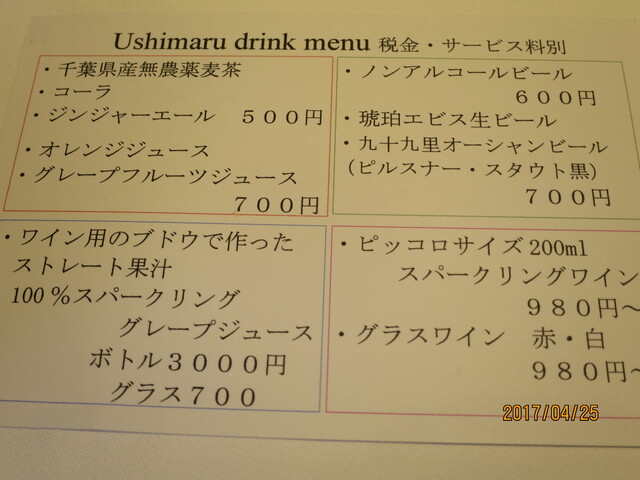 Ushimaru drink menu 税金・サービス料別
・千葉県産無農薬麦茶
・コーラ
・ジンジャーエール ５００円
・オレンジジュース
・グレープフルーツジュース
７００円
・ノンアルコールビール
６００円
・琥珀エビス生ビール
・九十九里オーシャンビール
（ピルスナー・スタウト黒）
７００円
・ワイン用のブドウで作った
ストレート果汁
100％スパークリング
グレープジュース
ボトル３０００円
グラス７００
・ピッコロサイズ200ml
スパークリングワイン
９８０円～
・グラスワイン 赤・白
９８０円～
2017/04/25